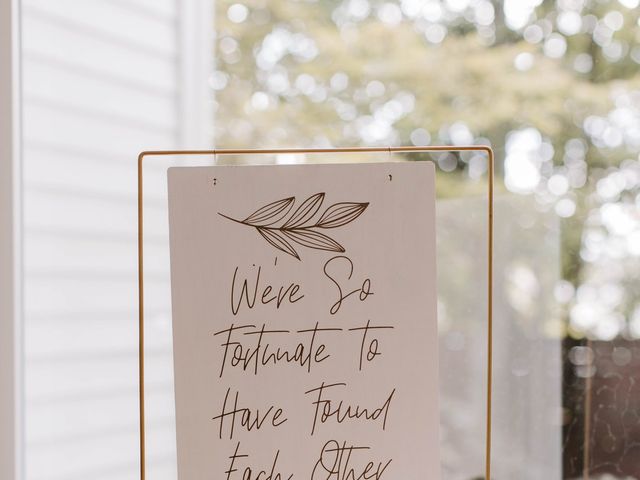 We're So
Fortunate To
Have Found
Each Other